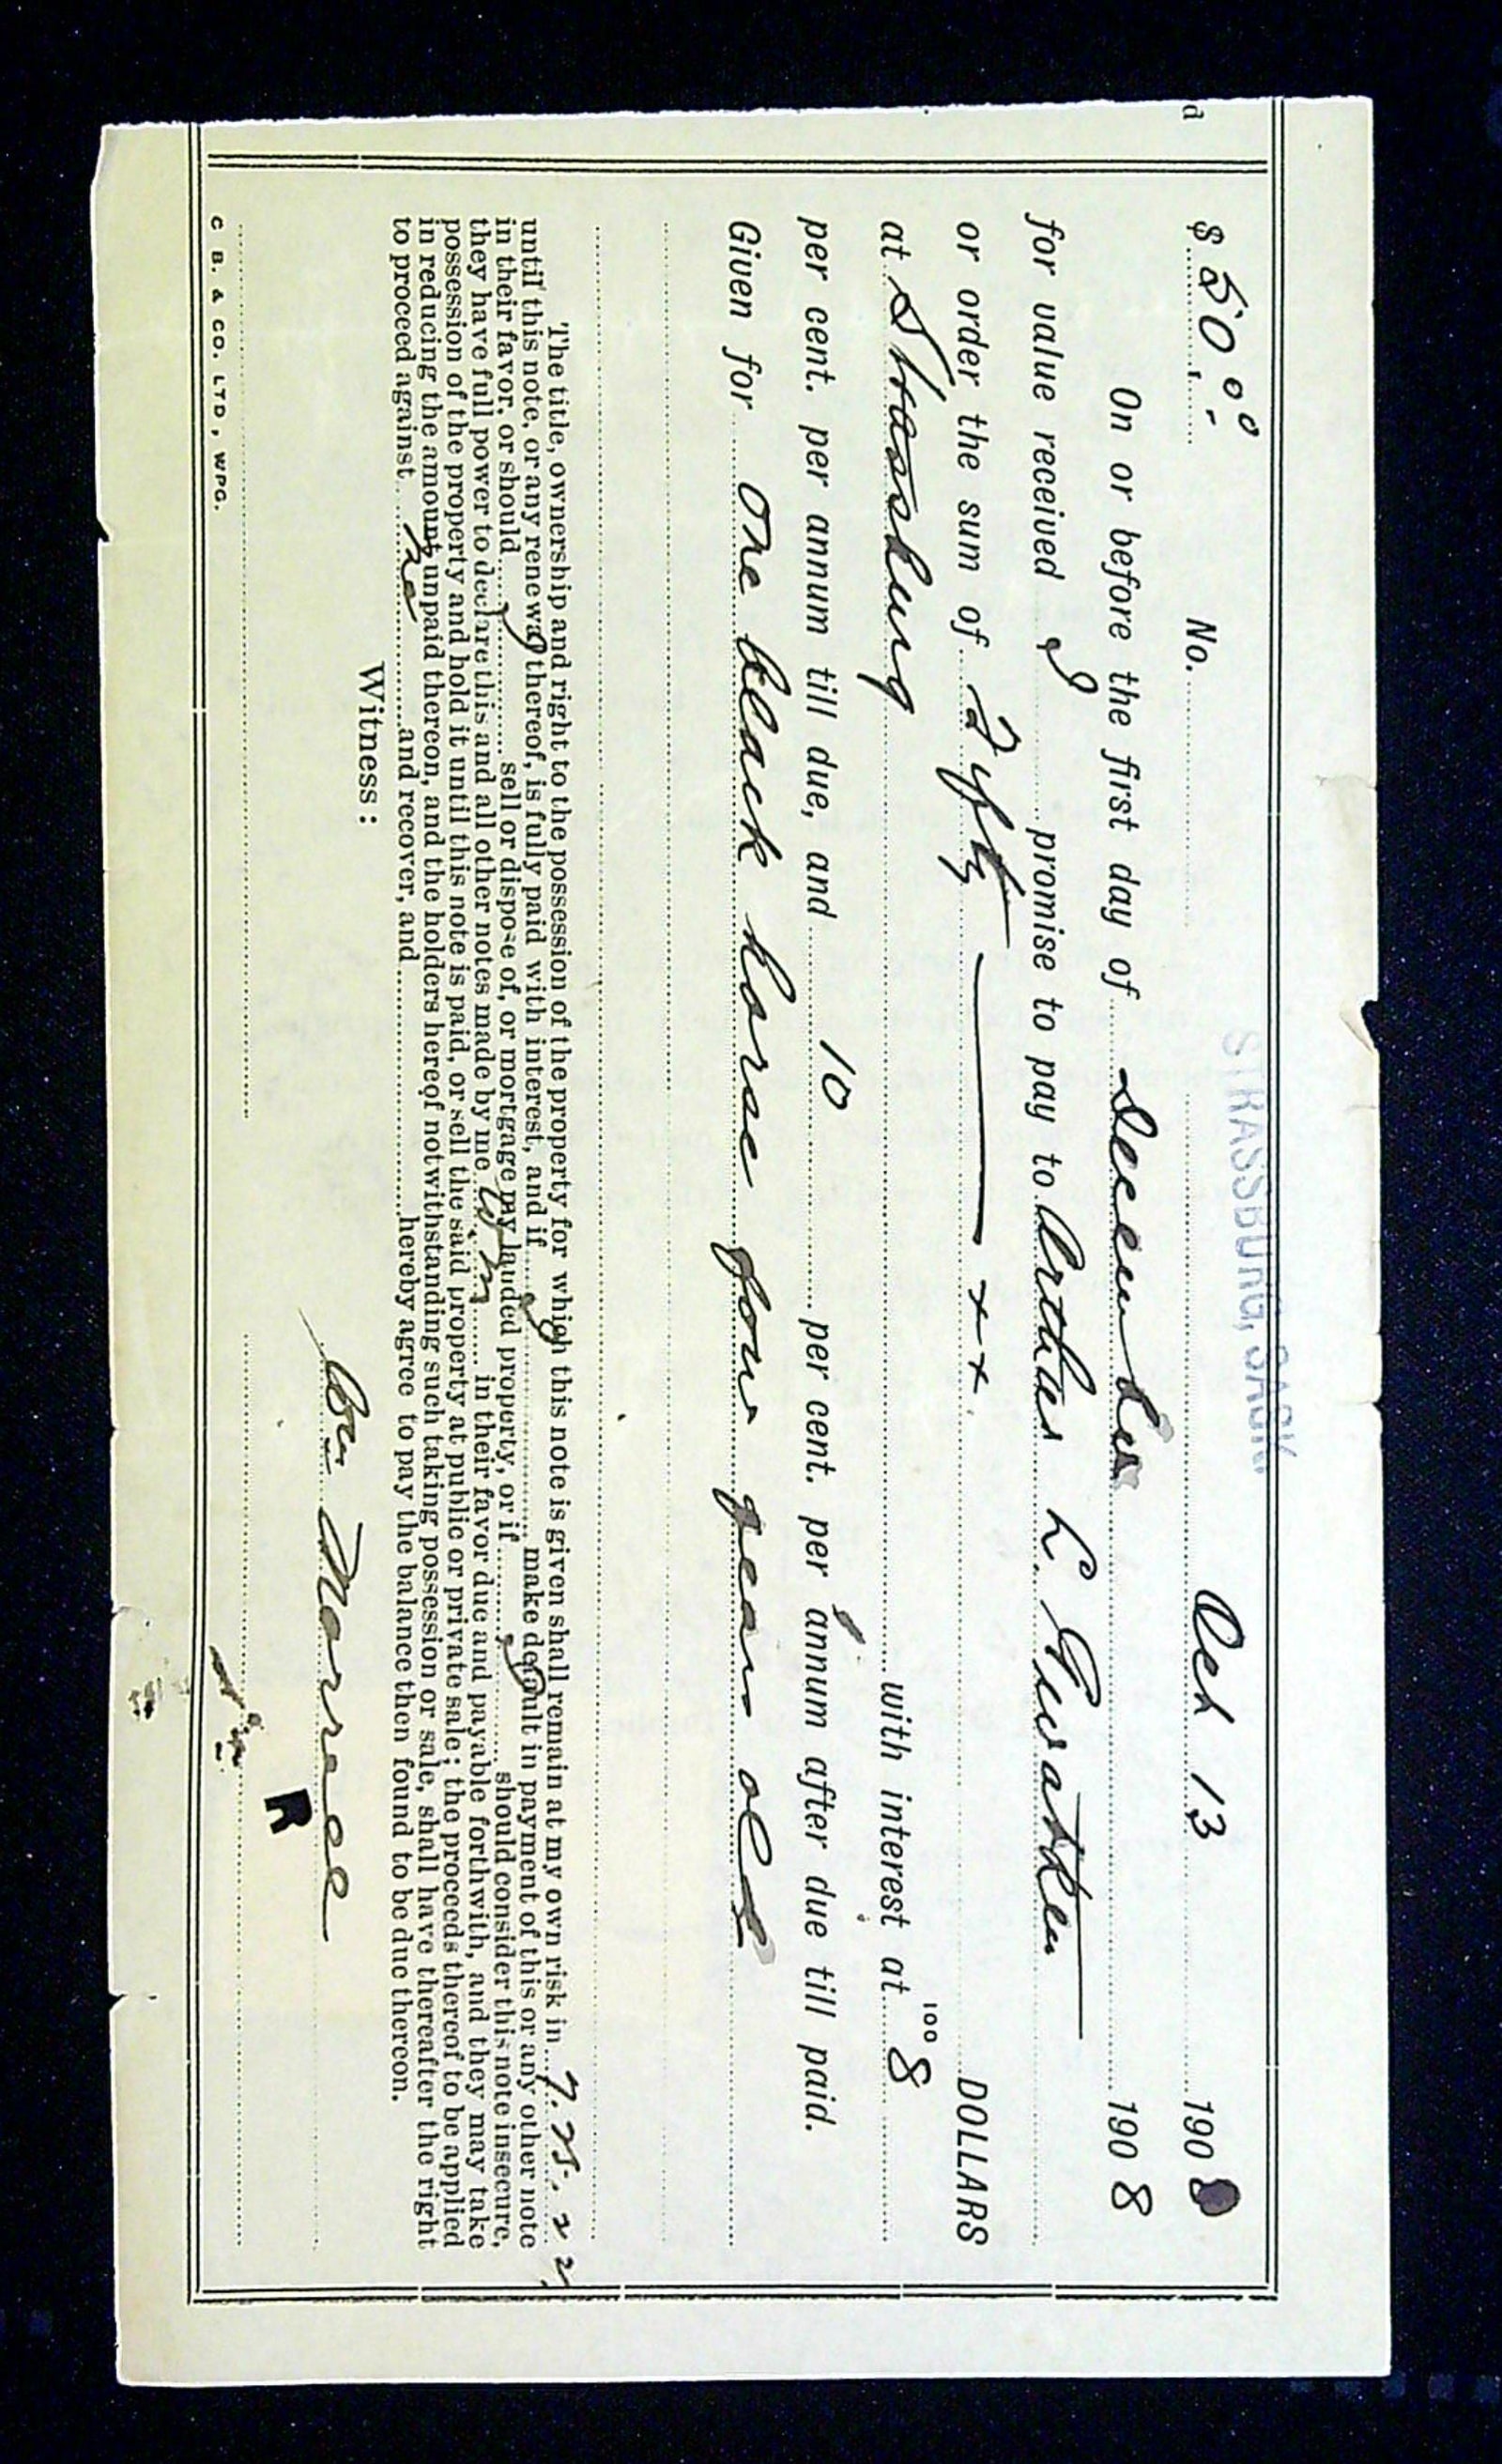 STRASSBURG, SASK.
$ 50.00 No. Oct 13 190
On or before the first day of December 1908
for value received I promise to pay to Arthur L.
or order the sum of Fifty xx 100 DOLLARS
at Strassburg with interest at 8
per cent. per annum till due, and 10 per cent. per annum after due till paid.
Given for one black horse four years old
The title, ownership and right to the possession of the property for which this note is given shall remain at my own risk in
until this note, or any renewal thereof, is fully paid with interest, and if I make default in payment of this or any other note
in their favor, or should I sell or dispose of, or mortgage my landed property, or if I should consider this note insecure,
they have full power to declare this and all other notes made by me in their favor due and payable forthwith, and they may take
possession of the property and hold it until this note is paid, or sell the said property at public or private sale; the proceeds thereof to be applied
in reducing the amount unpaid thereon, and the holders hereof notwithstanding such taking possession or sale, shall have thereafter the right
to proceed against me and recover, and hereby agree to pay the balance then found to be due thereon.
Witness:
R
C B. & CO. LTD, WPG.